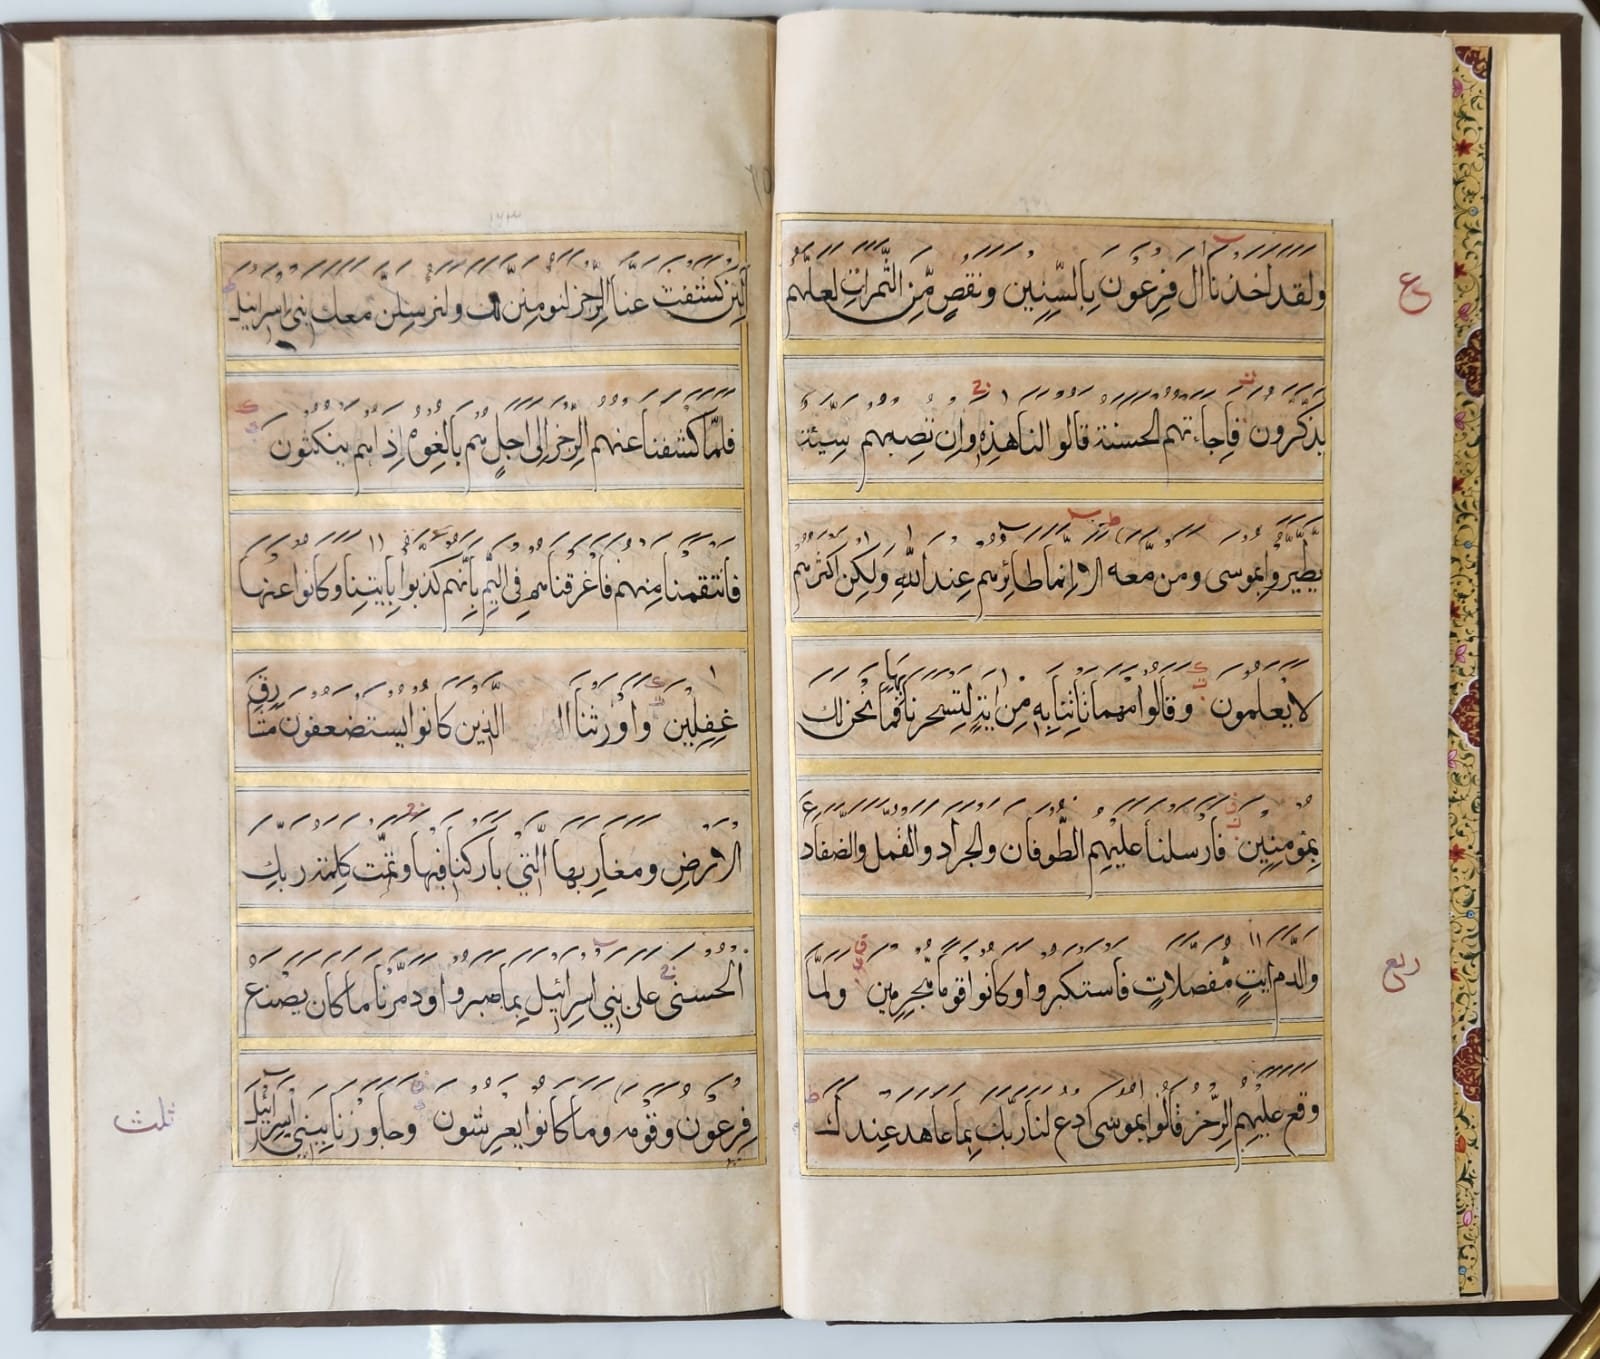 ع
ولقد اخذنا ال فرعون بالسنين ونقص من الثمرات لعلهم
يذكرون فاجاءتهم الحسنة قالوا لنا هذه وان تصبهم سيئة
يطيروا بموسى ومن معه الا انما طائرهم عند الله ولكن اكثرهم
لا يعلمون وقالوا مهما تاتنا به من اية لتسحرنا بها فما نحن لك
بمؤمنين فارسلنا عليهم الطوفان والجراد والقمل والضفاد
ع
والدم ايت مفصلات فاستكبروا وكانوا قوما مجرمين ولما
ربع
وقع عليهم الرجز قالوا يموسى ادع لنا ربك بما عاهد عندك
لئن كشفت عنا الرجز لنومنن لك ولنرسلن معك بني اسرائيل
فلما كشفنا عنهم الرجز الى اجل هم بالغوه اذا هم ينكثون
فانتقمنا منهم فاغرقناهم في اليم بانهم كذبوا بايتنا وكانوا عنها
غفلين واورثنا الذين كانوا يستضعفون مشارق
الارض ومغاربها التي باركنا فيها وتمت كلمة ربك
الحسنى على بني اسرائيل بما صبروا ودمرنا ما كان يصنع
فرعون وقومه وما كانوا يعرشون وجاوزنا ببني اسرائيل
ثلث